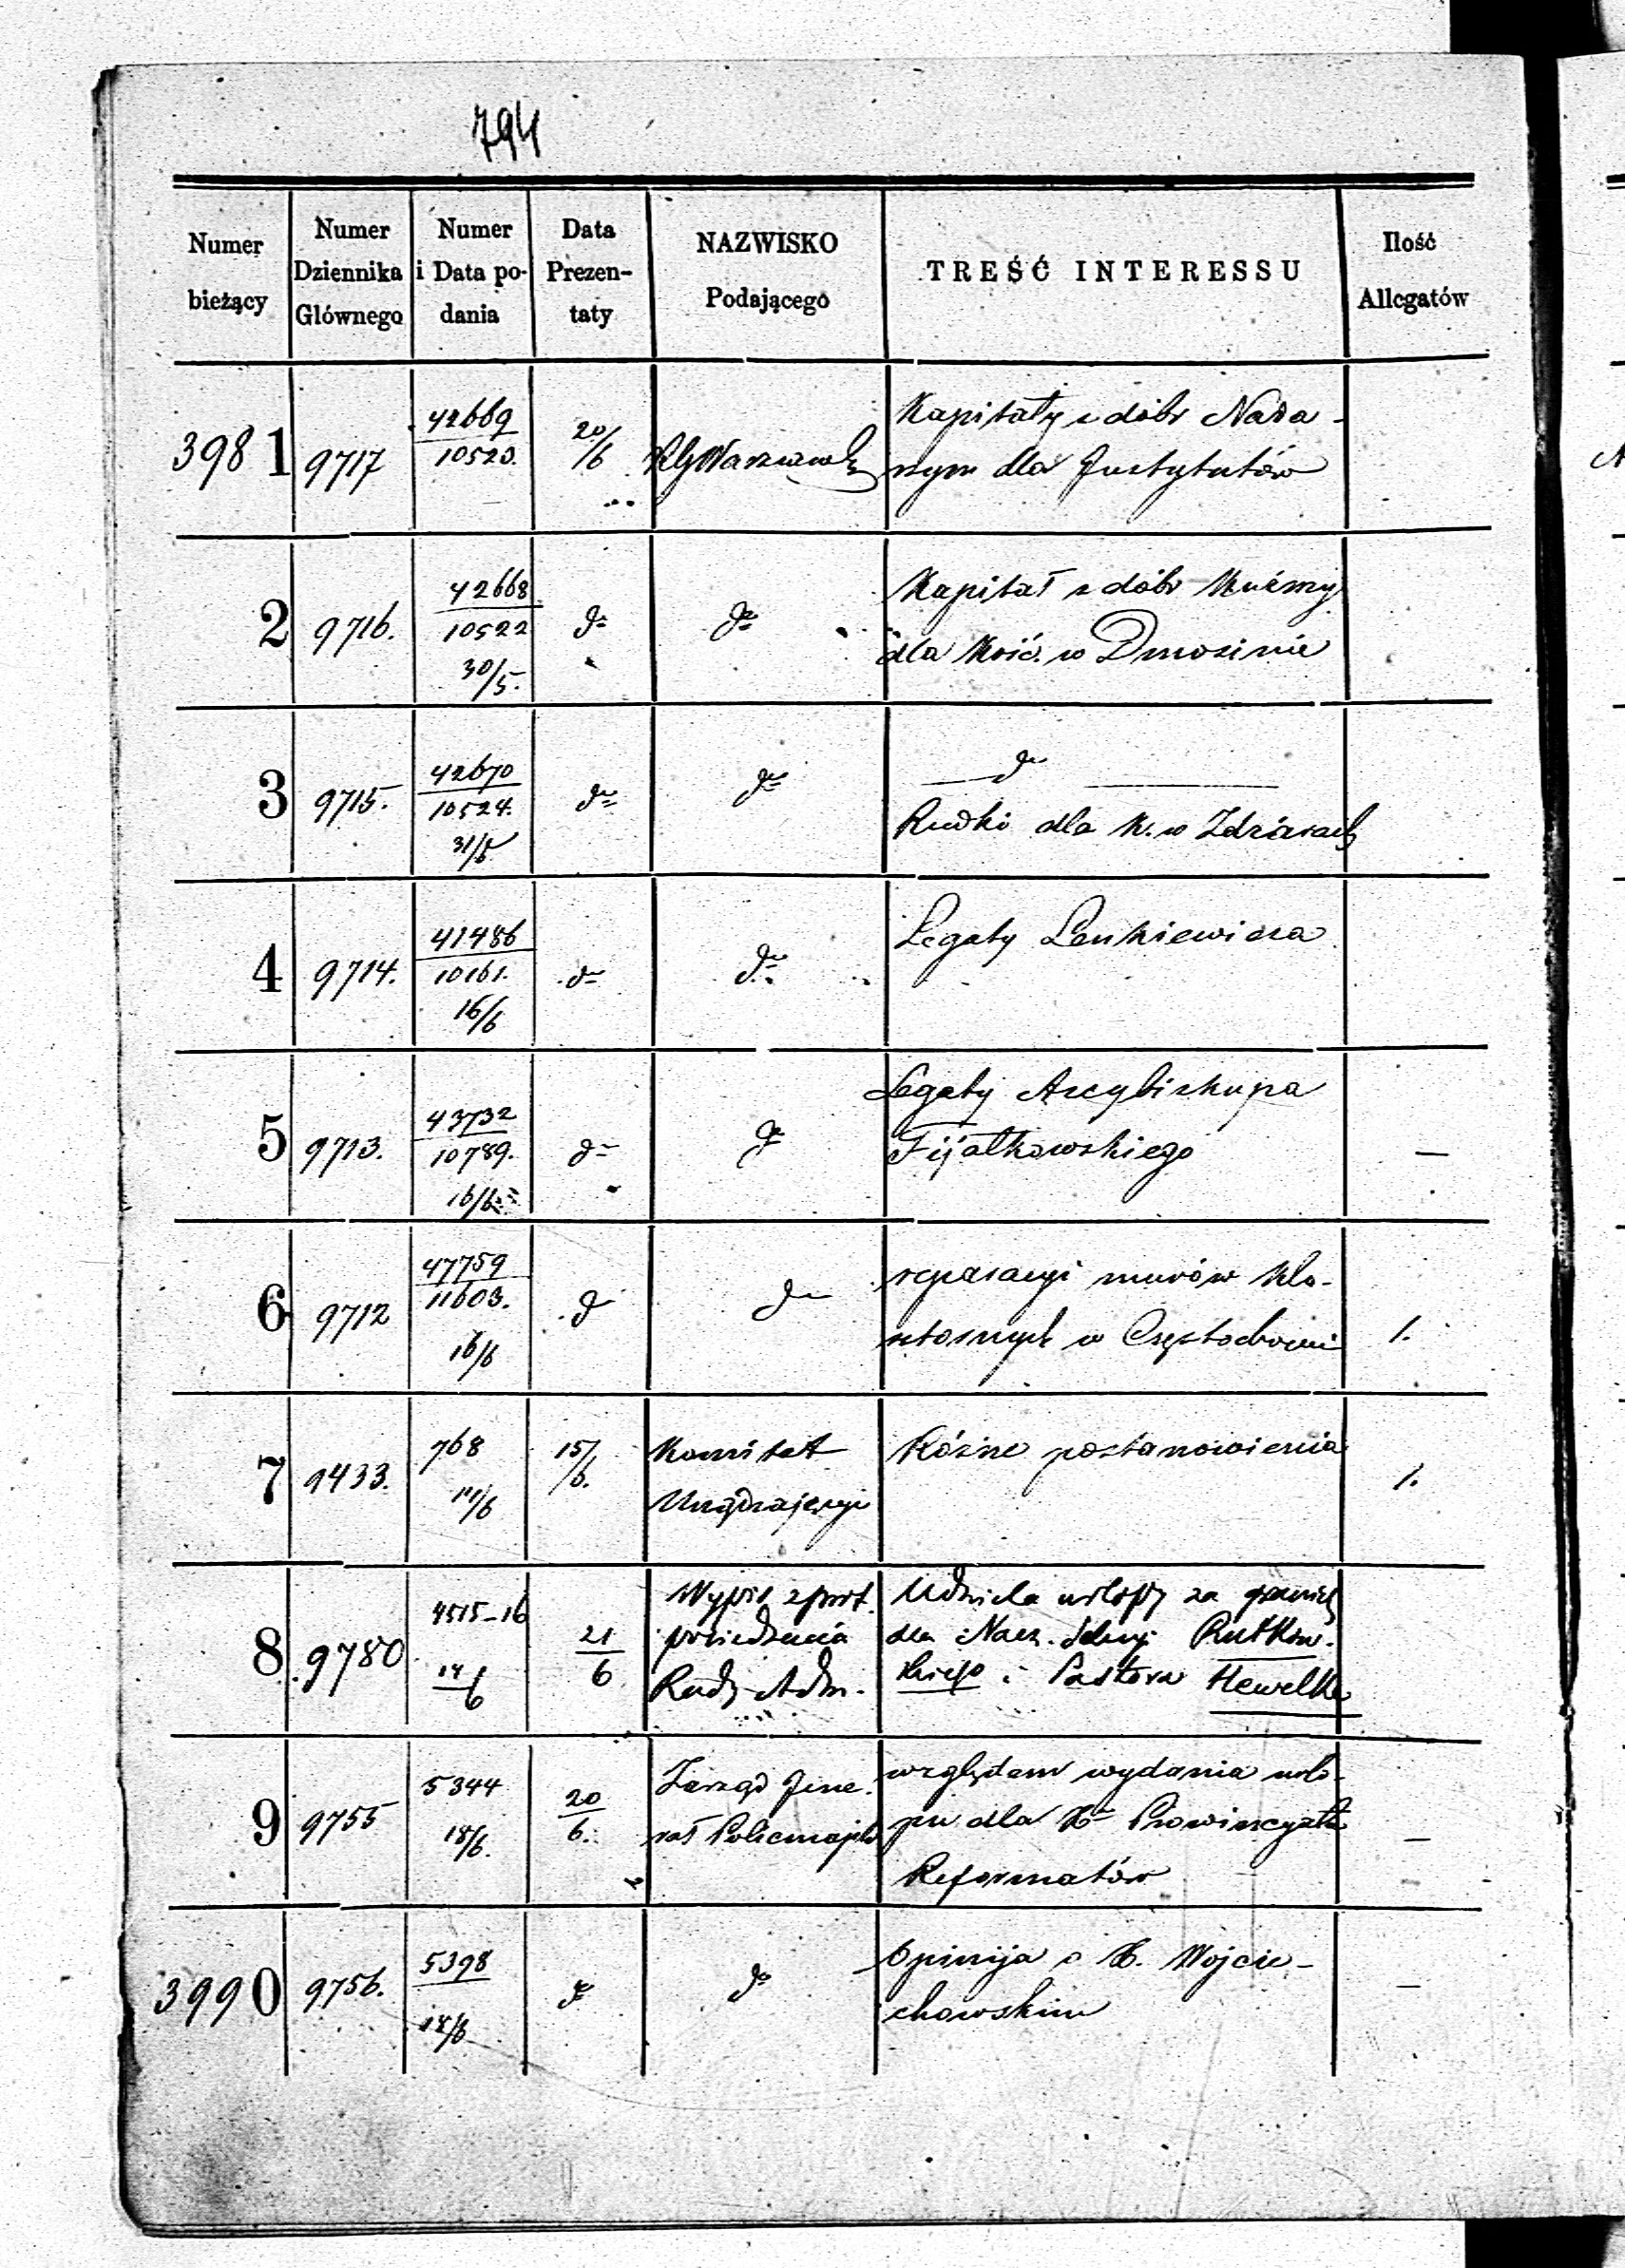 794
Numer bieżący
Numer Dziennika Głównego
Numer i Data podania
Data Prezentaty
NAZWISKO Podającego
TREŚĆ INTERESSU
Ilość Allegatów
3981
9717
42669
10523.
20/6
RGWarszawski
Kapitały z dóbr
dla Instytutów
2
9716.
42668
10522
30/5.
do
do
Kapitał z dóbr
dla Kość. w Dmosinie
3
9715.
42670
10524.
do
do
do
Rudki dla K. w Zdżarach
4
9714.
41486
10161.
16/6
do
do
Legaty Lenkiewicza
5
9713.
43732
10789.
16/6
do
do
Legaty Arcybiskupa
Fijałkowskiego
—
6
9712
47759
11603.
16/6
do
do
reparacyi murów kla-
sztornych w Częstochowie
1.
7
9433.
768
15/6.
Komitet
Urządzający
Różne postanowienia
1.
8
9780
4515-16
14/6
21
6
Wypis z prot.
posiedzenia
Rady Adm.
Udziela urlopy za granicę
dla Nacz. Rutkow-
skiego i Pastora Hewelke
9
9755
5344
18/6.
20
6.
Zarząd Jene-
rał Policmajstr
względem wydania urlo-
pu dla X. Prowincyała
Reformatów
—
3990
9756.
5398
18/6
do
do
Opinija o X. Wojcie-
chowskim
—